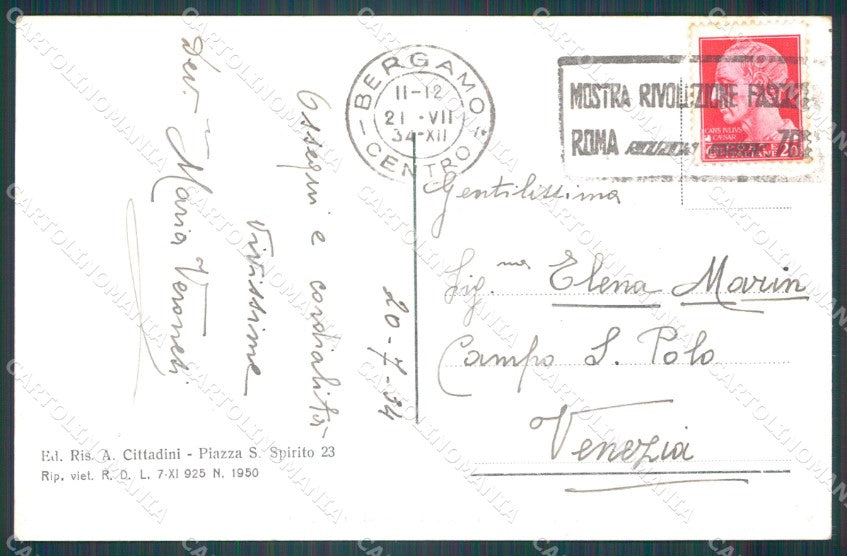 BERGAMO
CENTRO
11-12
21 • VII
34-XII
MOSTRA RIVOLUZIONE FASC
ROMA 70
CAIVS IVLIVS
CAESAR
20
Gentilissima
Sig.na Elena Marin
Campo S. Polo
Venezia
20-7-34
Ossequi e cordialità
vivissime
Dev. Maria Veronesi
Ed. Ris. A. Cittadini - Piazza S. Spirito 23
Rip. viet. R. D. L. 7-XI 925 N. 1950
CARTOLINOMANIA